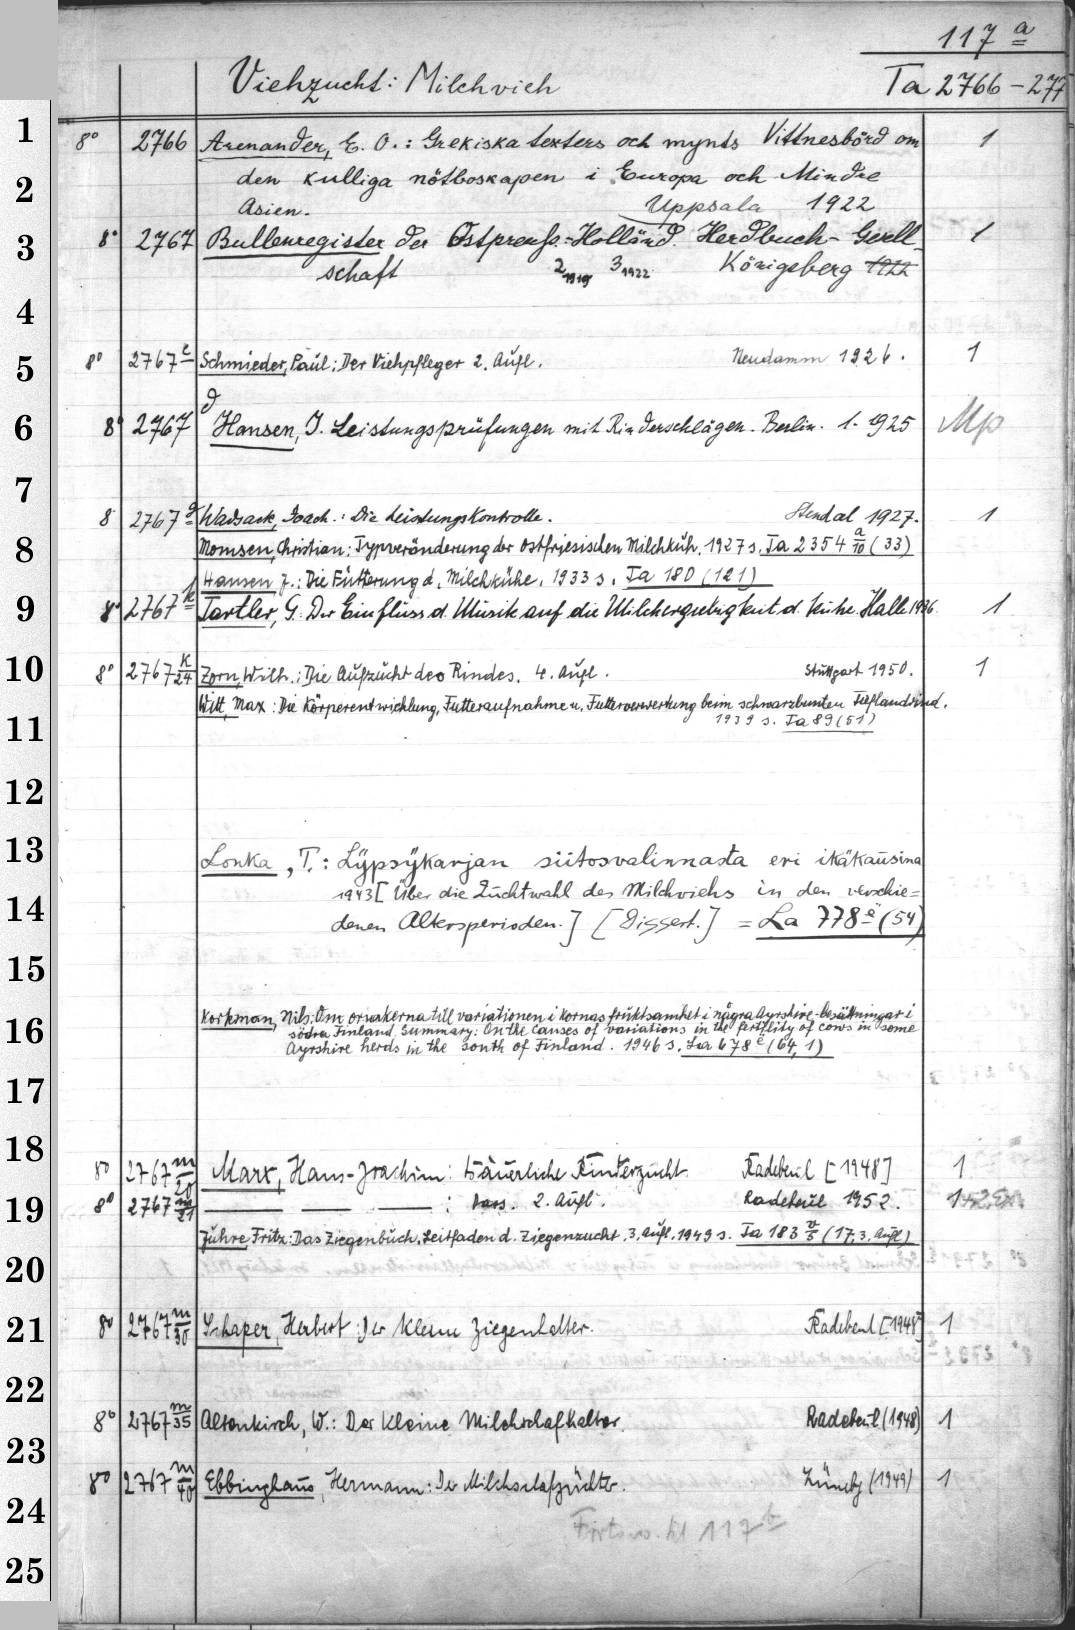 117 a
Viehzucht: Milchvieh Ta 2766 - 277
1
8° 2766 Arenander, E. O.: Grekiska texters och mynts Vittnesbörd om 1
2 den kulliga nötboskapen i Europa och Mindre
Asien. Uppsala 1922
3 8° 2767 Bullenregister der Ostpreuss.-Holländ. Herdbuch-Gesell- 1
schaft 2 1919 3 1922 Königsberg 1922
4
5 8° 2767 c Schmieder, Paul: Der Viehpfleger 2. Aufl. Neudamm 1926. 1
6 8° 2767 d Hansen, J. Leistungsprüfungen mit Rinderschlägen. Berlin. 1. 1925 Mp
7
8 2767 g Wadsack, Joach.: Die Leistungskontrolle. Stendal 1927. 1
8 Momsen, Christian: Typveränderung der ostfriesischen Milchkuh. 1927 s. Ta 2354 a/10 (33)
Hansen J.: Die Fütterung d. Milchkühe. 1933 s. Ta 180 (121)
9 8° 2767 k Tartler, G: Der Einfluss d. Musik auf die Milchergiebigkeit d. Kühe. Halle 1936 1
10 8° 2767 k/24 Zorn, Wilh.: Die Aufzucht des Rindes. 4. Aufl. Stuttgart 1950. 1
Witt, Max: Die Körperentwicklung, Futteraufnahme u. Futterverwertung beim schwarzbunten Tieflandrind.
11 1939 s. Ta 89 (51)
12
13 Lonka, T.: Lypsykarjan siitosvalinnasta eri ikäkausina
1943 [Über die Zuchtwahl des Milchviehs in den verschie=
14 denen Altersperioden.] [Dissert.] = La 778 e (54)
15
Korkman, Nils: Om orsakerna till variationen i kornas fruktsamhet i några Ayrshire-besättningar i
16 södra Finland. Summary: On the causes of variations in the fertility of cows in some
Ayrshire herds in the south of Finland. 1946 s. La 678 e (64, 1)
17
18 8° 2767 m/20 Marx, Hans-Joachim: Bäuerliche Rinderzucht Radebeul [1948] 1
19 8° 2767 m/21 — — — : dass. 2. Aufl. Radebeul 1952. 1+2.Ex.
Führe Fritz: Das Ziegenbuch. Leitfaden d. Ziegenzucht. 3. Aufl. 1949 s. Ta 183 v/5 (17, 3. Aufl)
20
21 8° 2767 m/30 Schaper, Herbert: Der kleine Ziegenhalter. Radebeul [1948] 1
22
8° 2767 m/35 Altenkirch, W.: Der kleine Milchschafhalter. Radebeul (1948) 1
23
8° 2767 m/40 Ebbinghaus, Hermann: Der Milchschafzüchter. (1949) 1
24
Forts. Bl 117 b
25